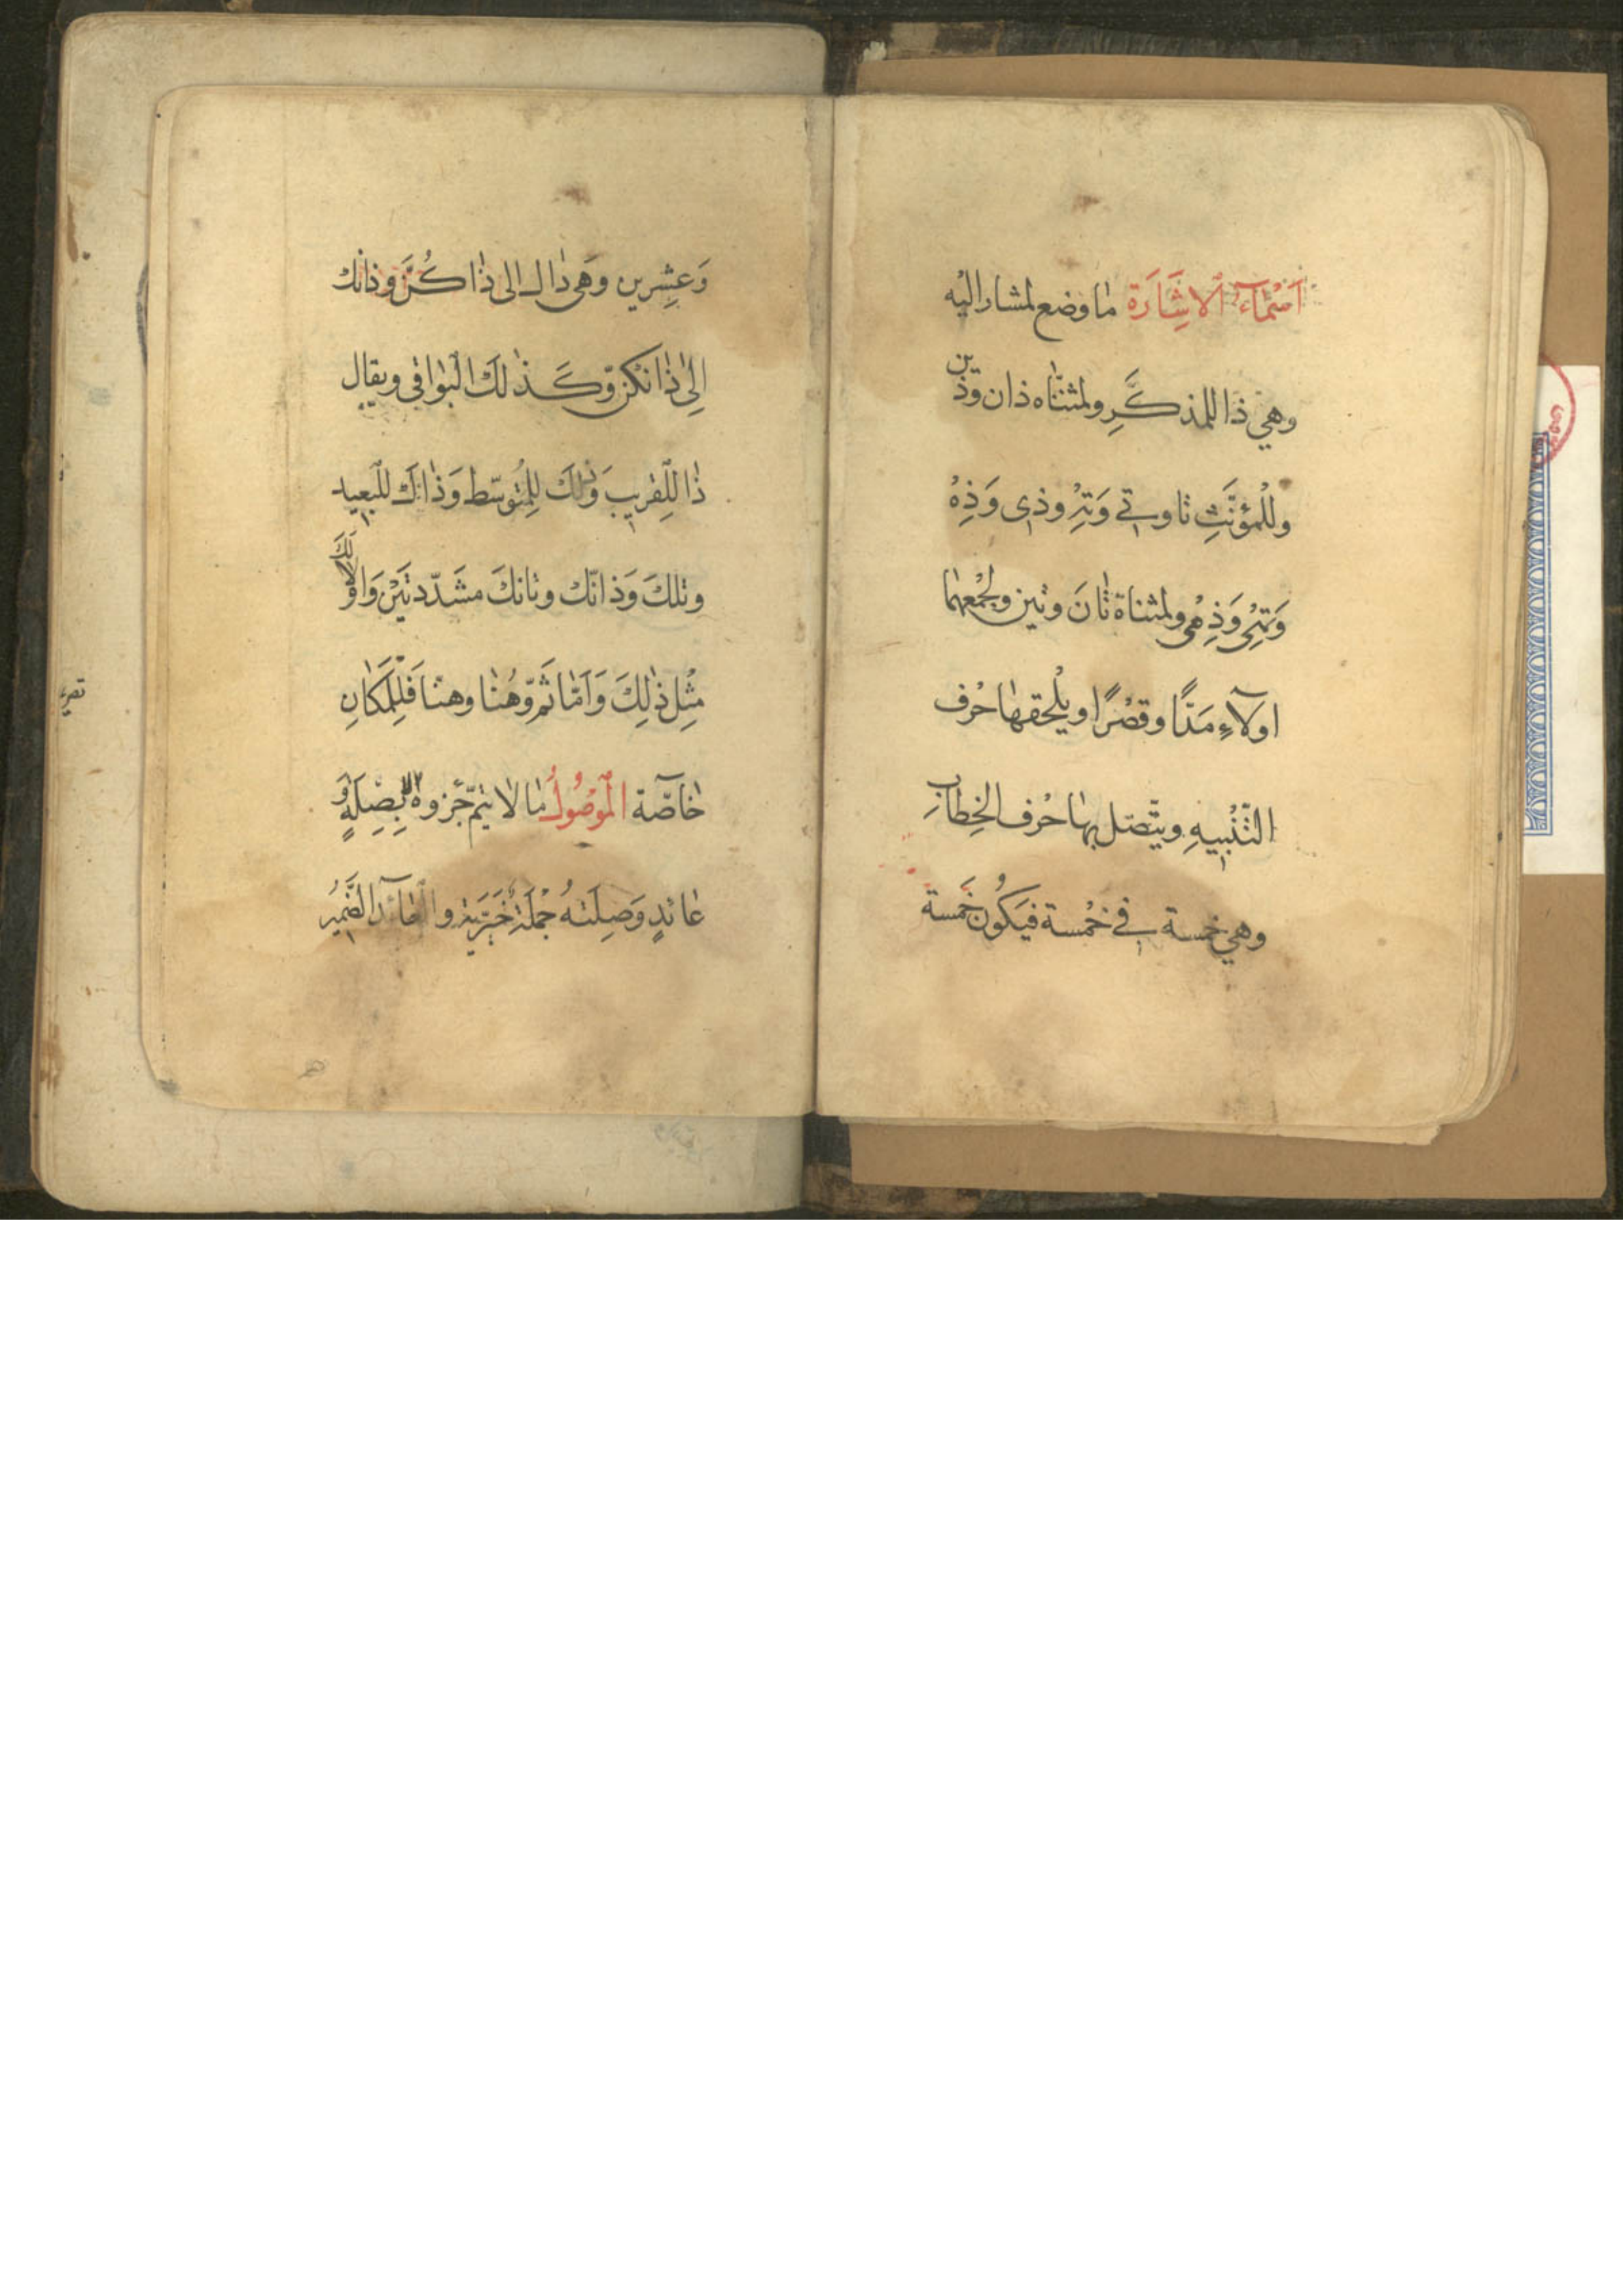 اَسْمَآءُ الْاِشَارَة مٰا وضع لمشار اليْه
وهي ذا للمذكَّرِ ولمثنّٰاه ذان وذَين
وللْمؤنَّثِ تا وتي وَتِهْ وذي وَذِهْ
وَتِهي وَذِهْي ولمثناة تٰانَ وتين ولجمْعهمٰا
اولآءِ مَدًّا وقصْرًا ويلْحقهٰا حْرف
التَّنْبيهِ ويتّصل بهٰا حْرف الخِطٰابِ
وهي خمسة في خمْسة فيَكُون خَمسة
وَعشِرين وهَي ذاك الى ذٰا كُنَّ وذانك
اِلىٰ ذٰانكنّ وَكَذٰلكَ الْبوٰاقي ويقال
ذٰا للِقريب وَذٰلكَ لِلْمتُوسّط وَذٰاكَ للْبَعيد
وتلكَ وَذانّك وتانكَ مشَدّدتَيْن وَاوُلالَكَ
مثِْل ذٰلِكَ وَاَمّٰا ثَمَّ وهُنٰا وهنّا فَلِلْمَكٰانِ
خٰاصّة الْموْصُولُ مٰا لا يتمّ جُزوهٗ الا بِصِلَةٍ وَ
عٰائدٍ وَصِلَتهُ جُمْلَةٌ خَبَريّة والْعٰآئدُ الضَّميُر